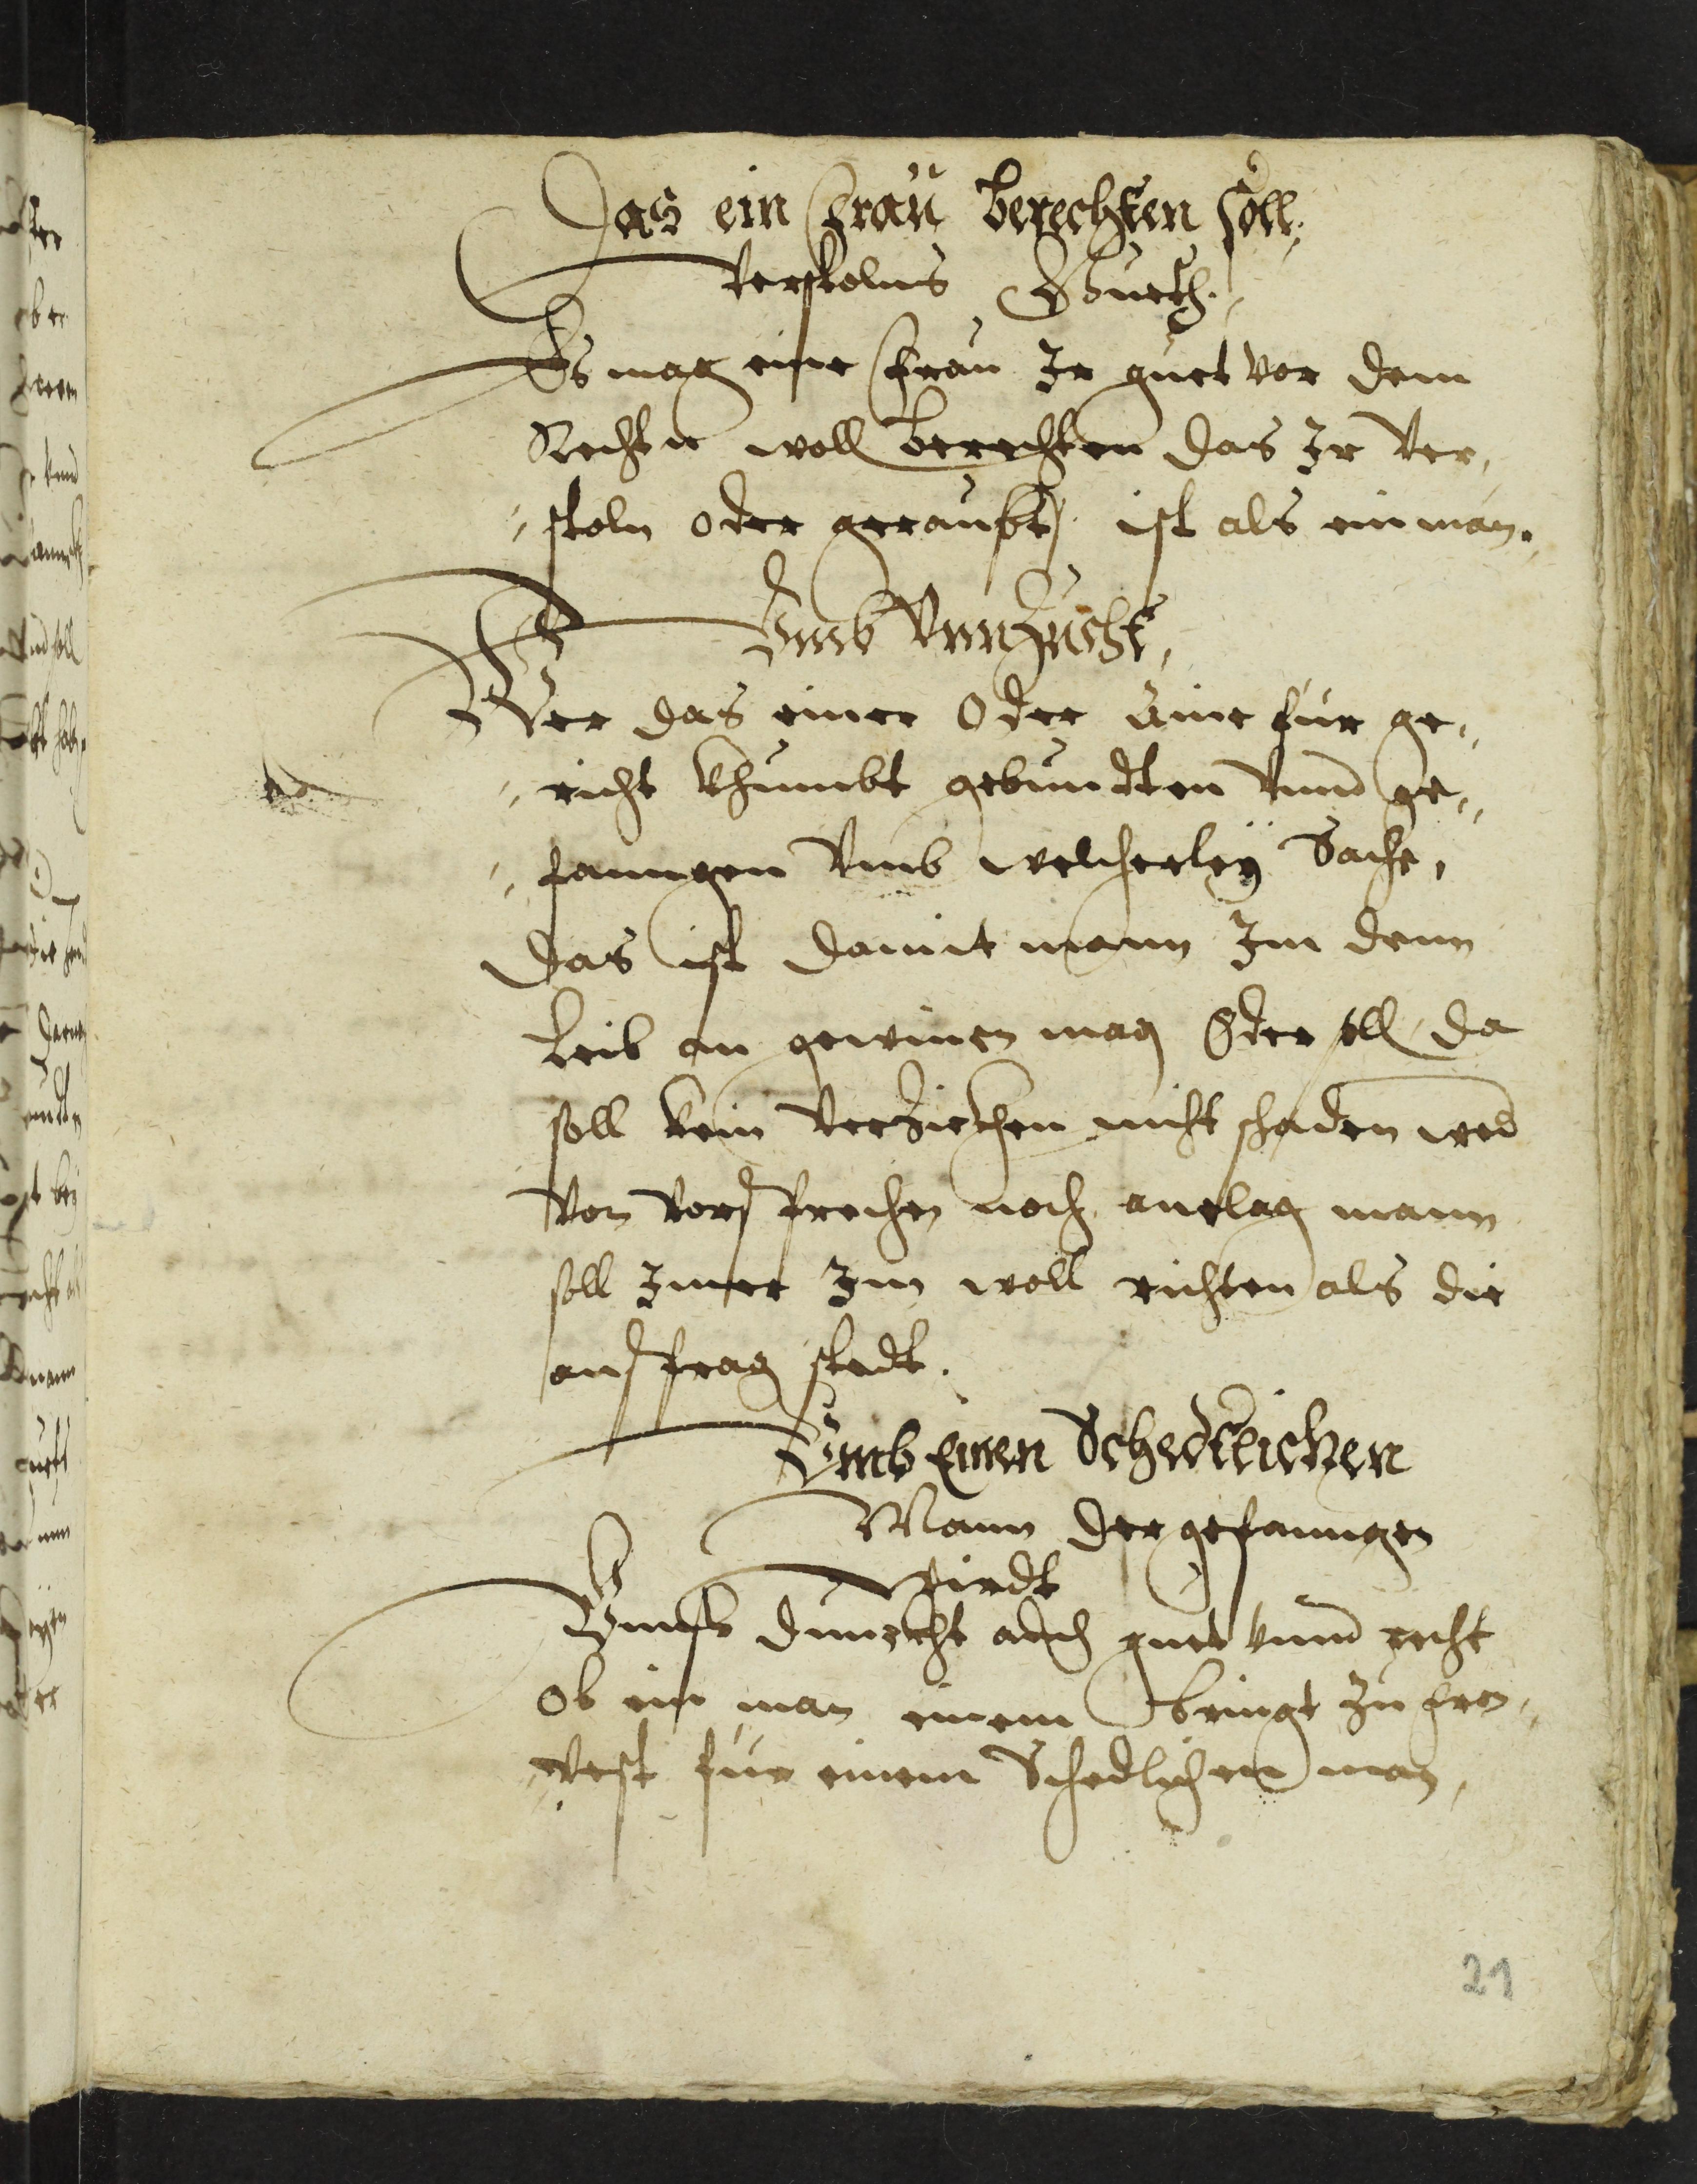 Das ein Frau berechten soll,
verstolns Gueth.
Es mag eine Frau Ir guet vor dem
Rechten woll berechten das Ir ver,,
,,stoln oder geraubt ist als ein man.
Vmb Vnnzucht,
Wer das einer Oder Aine für ge,,
,,richt khumbt gebundten vnnd ge,,
,,fanngen vmb welcherleÿ Sache,
das ist damit mann Im denn
Leib an gewinen mag Oder soll da
soll kein verziechen nicht schaden wed
von vorsprechen noch anclag mann
soll Imer Im woll richten als die
anspfrag stedt.
Vmb Einen Schedtlichen
Mann der gefanngen
wirdt
Vnnß dunckht auch guet vnnd recht
ob ein man einem bringt zu fro,,
,,vest für einem Schedlichen man,
21